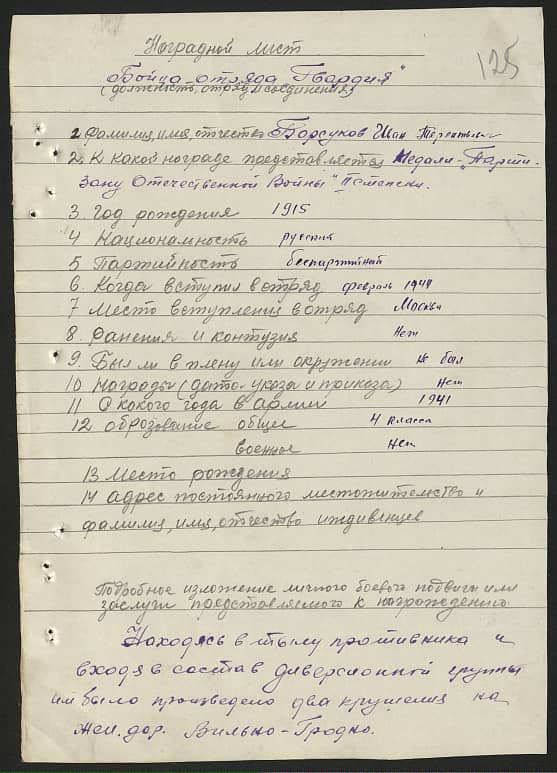 125
Наградной лист
"Бойца отряда Гвардия"
(должность, отряд и соединения)
1 Фамилия, имя, отчество Борсуков Иван Терентьевич
2. К какой награде представляется Медали „Парти-
зану Отечественной Войны" II степени.
3. Год рождения 1915
4 Национальность русский
5 Партийность беспартийный
6. Когда вступил в отряд февраль 1944
7 Место вступления в отряд Москва
8. Ранения и контузия Нет
9. Был ли в плену или окружении Не был
10 Награды (дата указа и приказа) Нет
11 С какого года в армии 1941
12 Оброзование общее 4 класса
военное Нет
13 Место рождения
14 Адрес постоянного местожительство и
фамилия, имя, отчество иждивенцев
Подробное изложение личного боевого подвига или
заслуги представляемого к награждению
Находясь в тылу противника и
входя в состав диверсионной группы
им было произведено два крушения на
жел. дор. Вильно-Гродно.